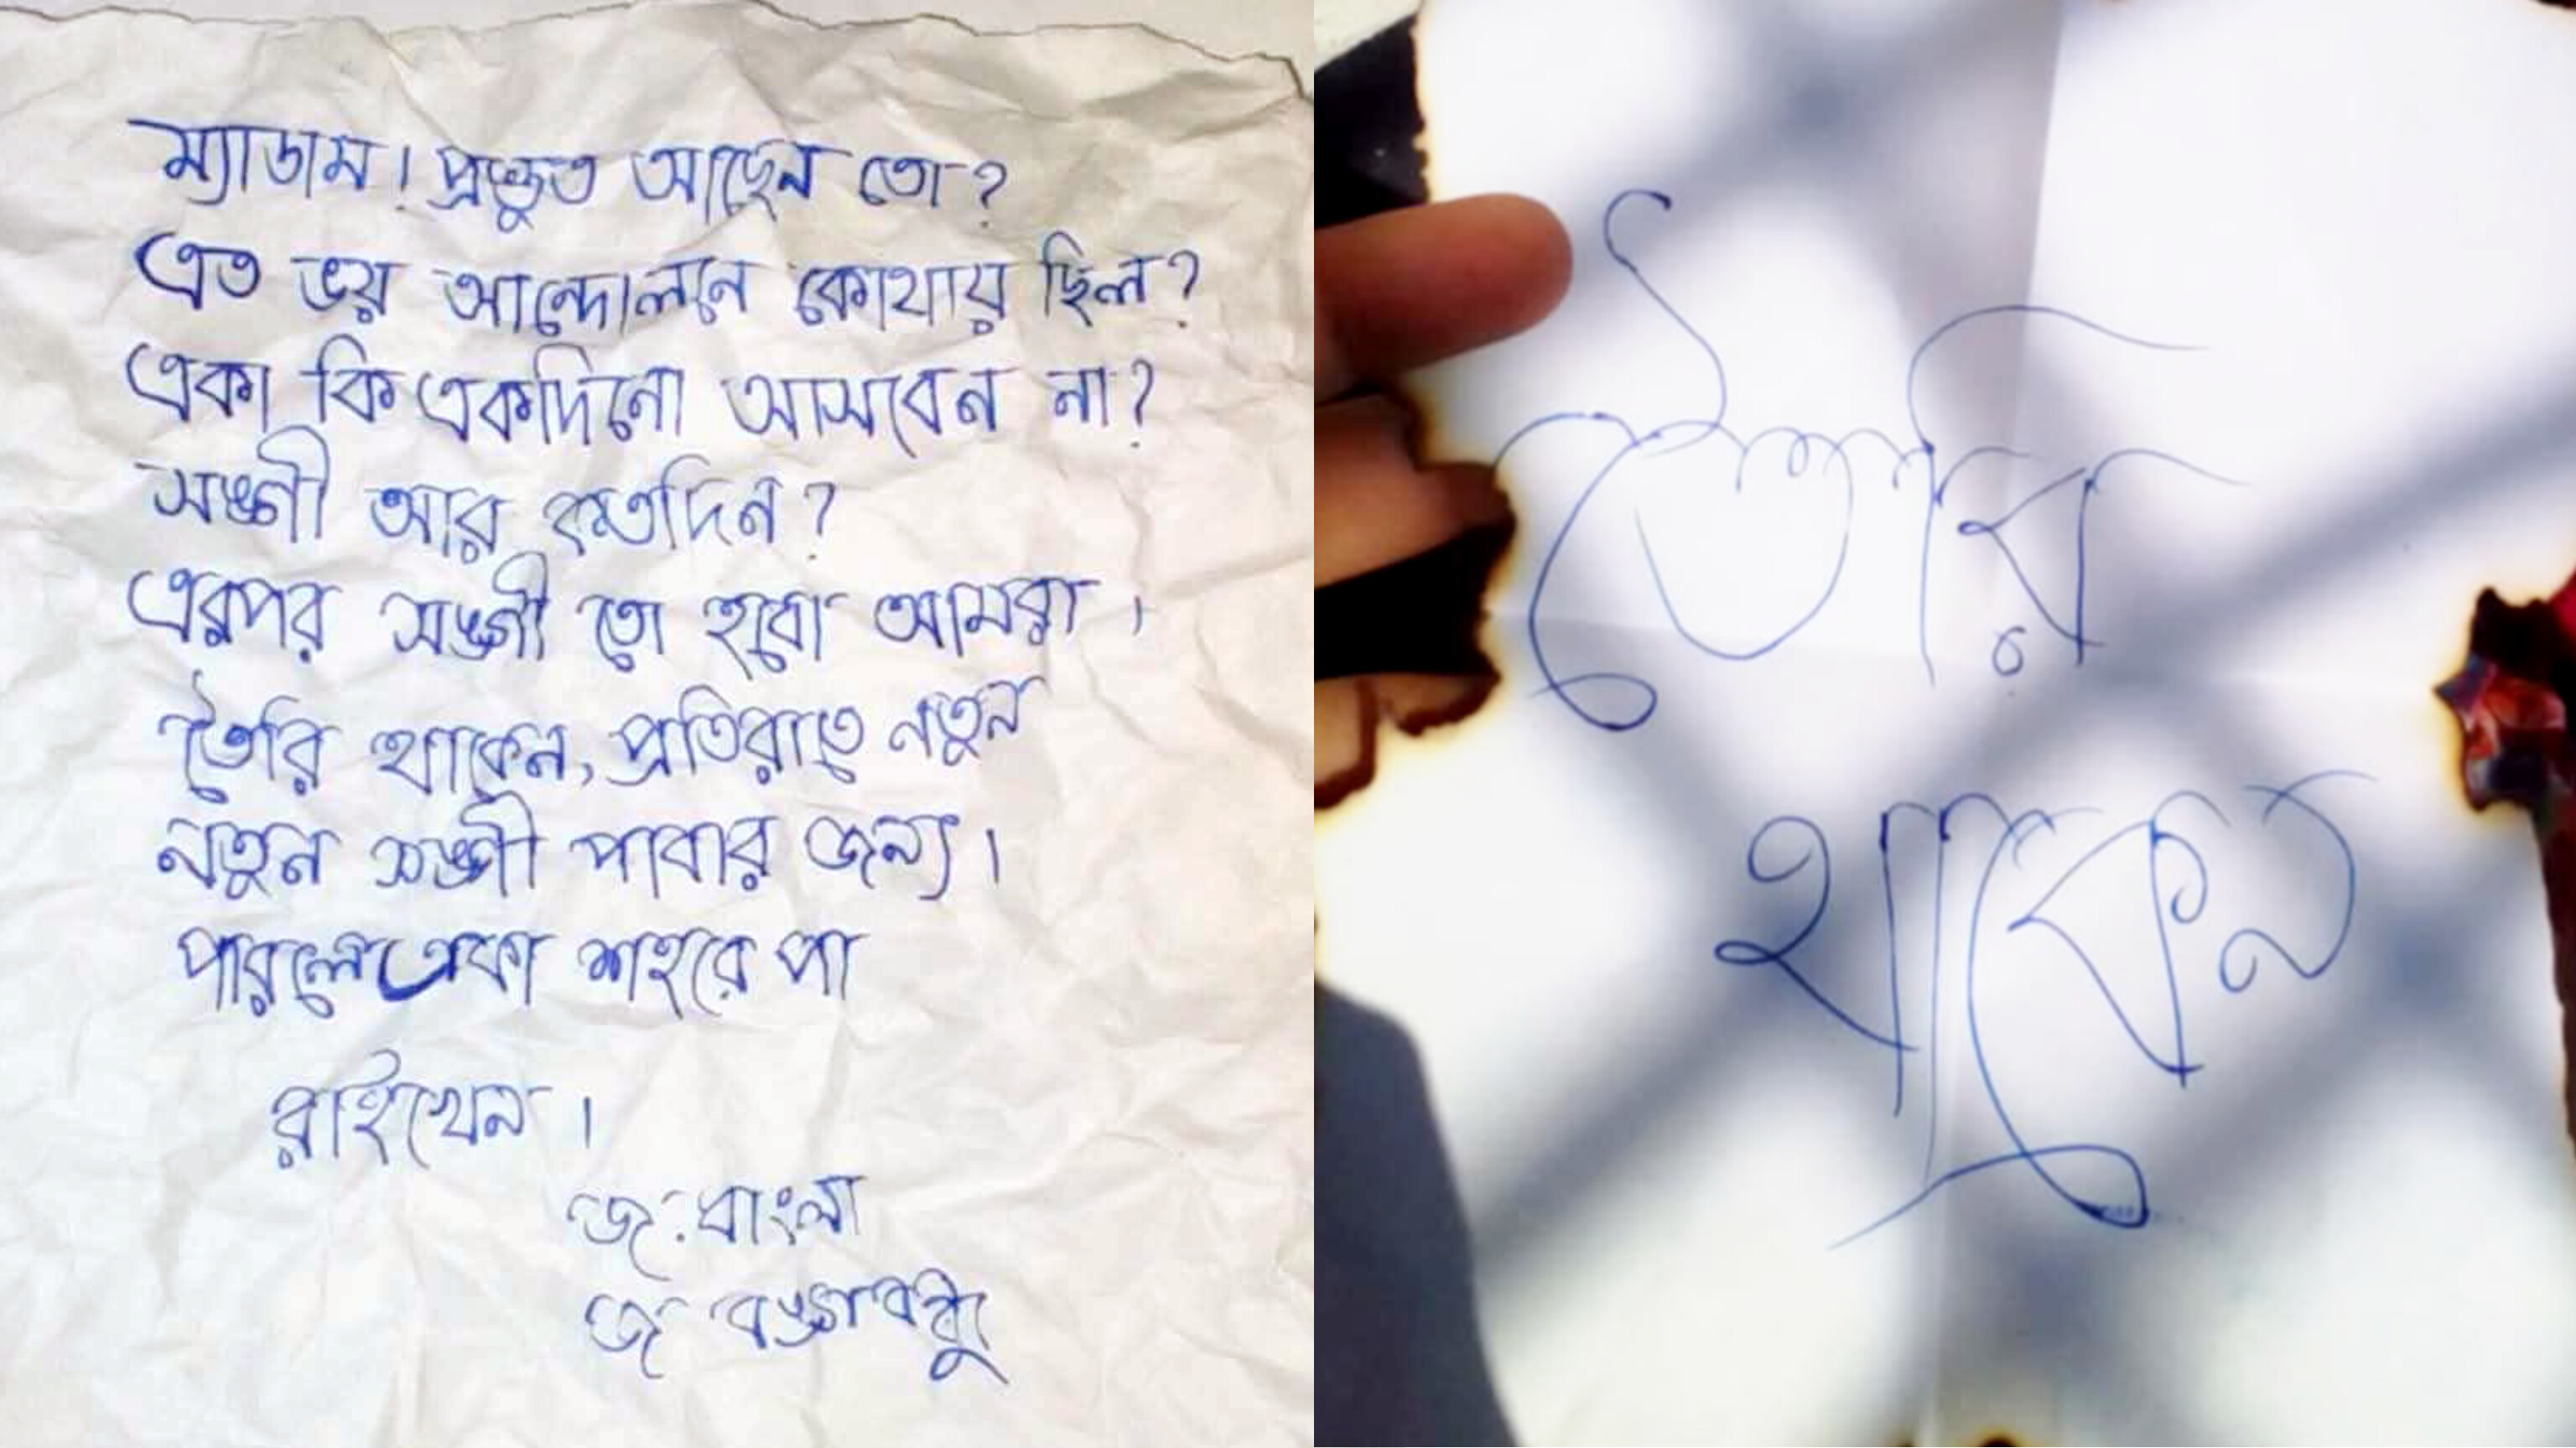 ম্যাডাম! প্রস্তুত আছেন তো?
এত ভয় আন্দোলনে কোথায় ছিল?
একা কি একদিনো আসবেন না?
সঙ্গী আর কতদিন?
এরপর সঙ্গী তো হবো আমরা।
তৈরি থাকেন, প্রতিরাতে নতুন
নতুন সঙ্গী পাবার জন্য।
পারলে একা শহরে পা
রাইখেন।
জ: বাংলা
জ বঙ্গবন্ধু
তৈরি
থাকেন